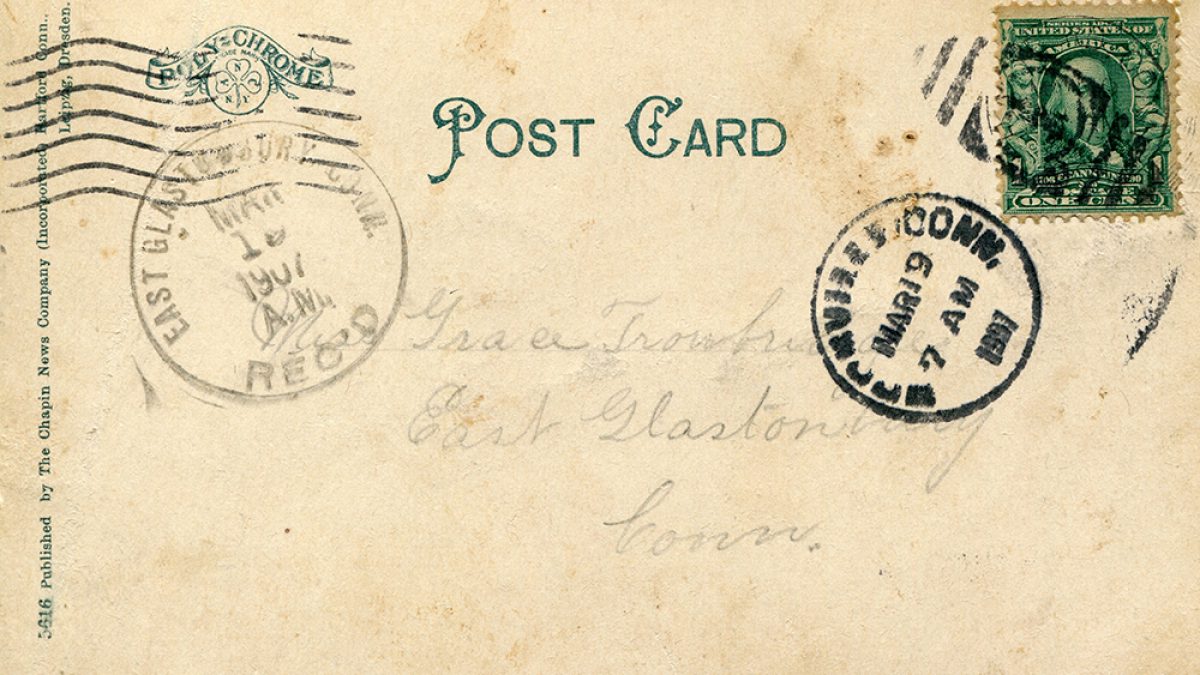 5616 Published by The Chapin News Company (Incorporated) Hartford Conn.,
Leipzig, Dresden.
POLY-CHROME
TRADE MARK
N
A
N Y
POST CARD
SERIES 1902
UNITED STATES OF
AMERICA
1 1
ONE CENT
EAST GLASTONBURY CONN.
MAR
1907
A.M.
REC'D
CONN.
MAR 19
7 AM
1907
Miss Grace
East Glastonbury
Conn.